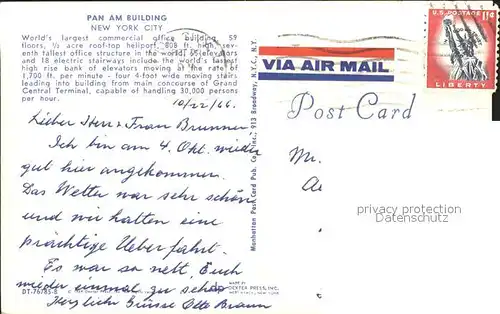 PAN AM BUILDING
NEW YORK CITY
World's largest commercial office building, 59
floors, ½ acre roof-top heliport, 808 ft. high, sev-
enth tallest office structure in the world, 65 elevators
and 18 electric stairways include the world's fastest
high rise bank of elevators moving at the rate of
1,700 ft. per minute - four 4-foot wide moving stairs
leading into building from main concourse of Grand
Central Terminal, capable of handling 30,000 persons
per hour.
10/22/66.
Lieber Herr & Frau Brunner
Ich bin am 4. Okt. wieder
gut hier angekommen.
Das Wetter war sehr schön
und wir hatten eine
prächtige Ueberfahrt.
Es war so nett, Euch
wieder einmal zu sehen
Herzliche Grüsse Otto Braun
DT-76785-B
MADE BY
DEXTER PRESS, INC.
WEST NYACK, NEW YORK
Manhattan Post Card Pub. Co., Inc., 913 Broadway, N.Y.C., N.Y.
VIA AIR MAIL
U.S. POSTAGE 11¢
LIBERTY
Post Card
Mr.
protected copyright
www.ansichtskarten-center.de